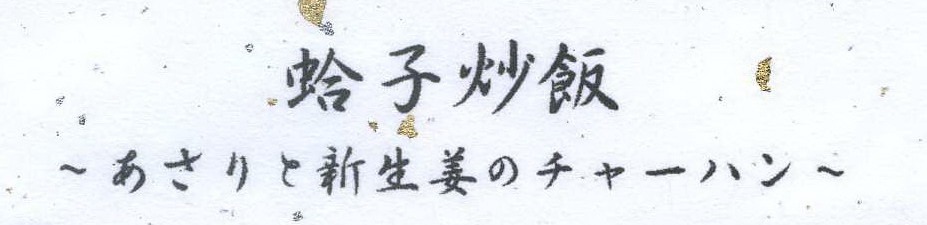 蛤子炒飯
～あさりと新生姜のチャーハン～